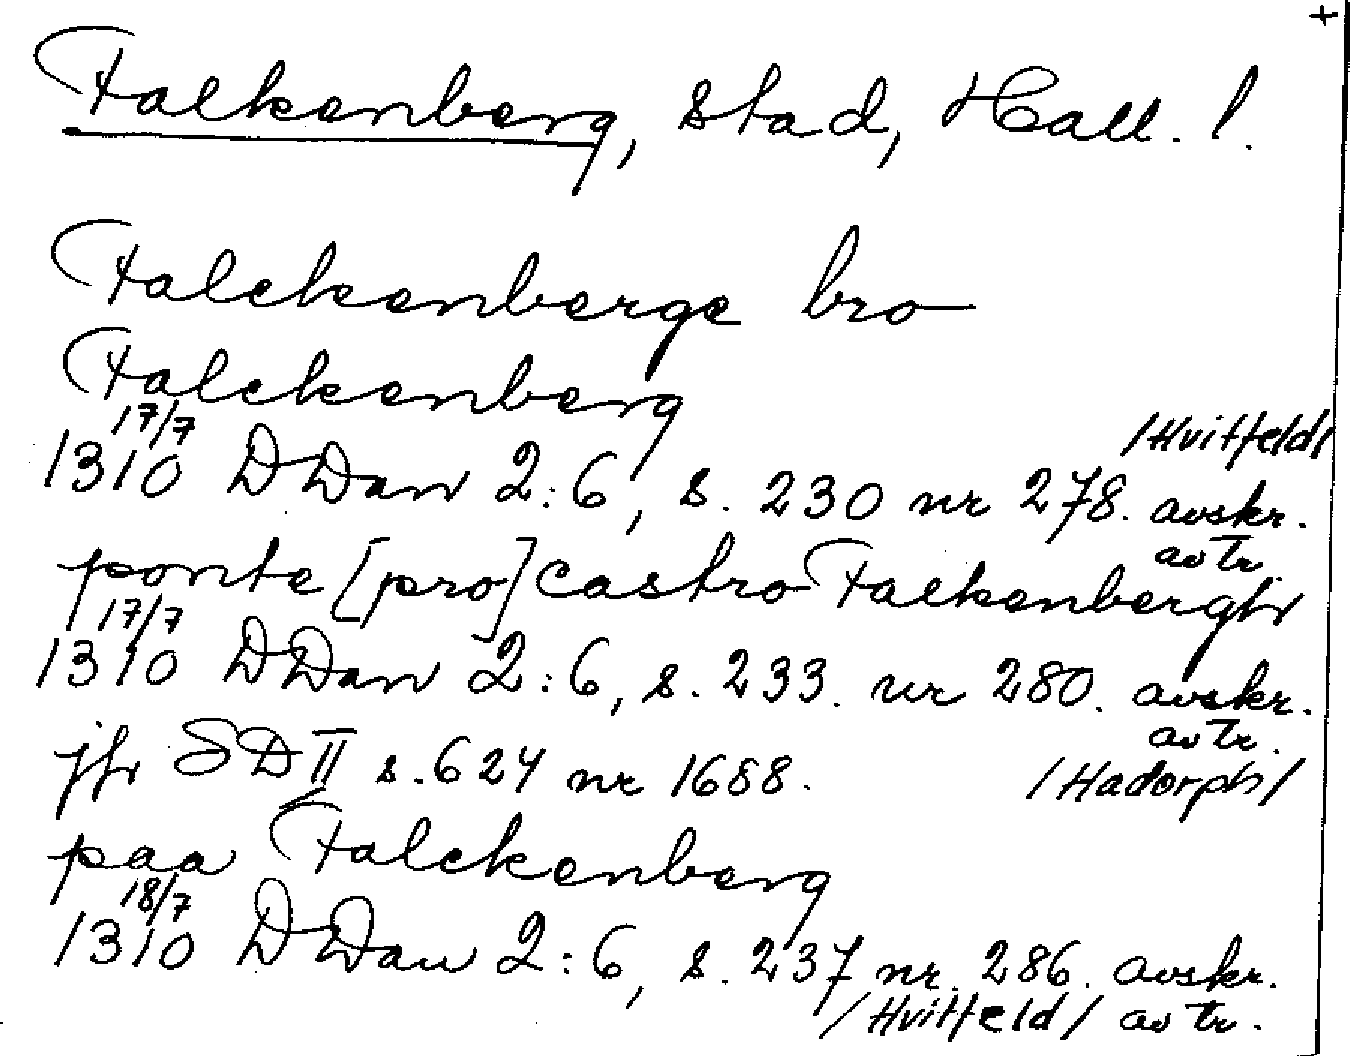 +
Falkenberg, stad, Hall. l.
Falckenberge bro
Falckenberg
17/7 /Hvitfeld/
1310 DDan 2:6, s. 230 nr 278. avskr.
av tr.
ponte [pro] castro Falkenbergh
17/7
1310 DDan 2:6, s. 233. nr 280. avskr.
av tr.
jfr SD II s. 624 nr 1688. /Hadorph/
paa Falckenberg
18/7
1310 DDan 2:6, s. 237 nr. 286. avskr.
/Hvitfeld/ av tr.